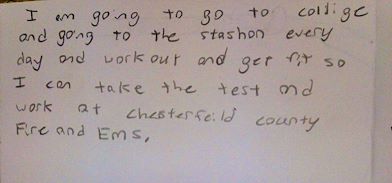 I am going to go to collige
and going to the stashon every
day and work out and get fit so
I can take the test and
work at chesterfeild county
Fire and Ems.